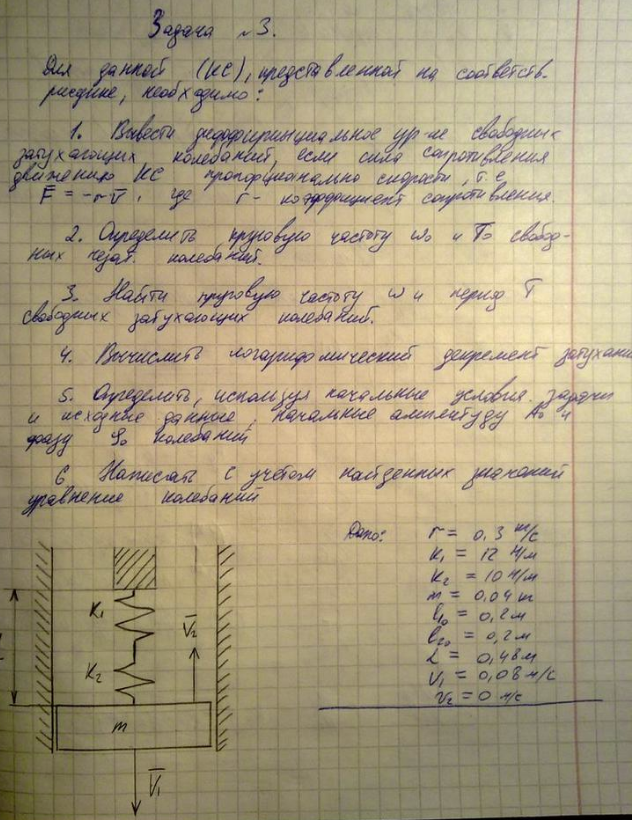 Задача №3.
Для данной (КС), представленной на соответств.
рисунке, необходимо:
1. Вывести дифференциальное ур-ие свободных
затухающих колебаний, если сила сопротивления
движению КС пропорциональна скорости, т.е.
F̅ = -rv̅, где r - коэффициент сопротивления.
2. Определить круговую частоту ω₀ и T₀ свобод-
ных незат. колебаний.
3. Найти круговую частоту ω и период T
свободных затухающих колебаний.
4. Вычислить логарифмический декремент затухани
5. Определить, используя начальные условия задачи
и исходные данные, начальные амплитуду A₀ и
фазу φ₀ колебаний
6 Написать с учётом найденных значений
уравнение колебаний
Дано: r = 0,3 кг/с
K₁ = 12 Н/м
K₂ = 10 Н/м
m = 0,04 кг
l₁₀ = 0,2 м
l₂₀ = 0,2 м
L = 0,48 м
V₁ = 0,08 м/с
V₂ = 0 м/с
K₁
V̅₂
K₂
m
V̅₁